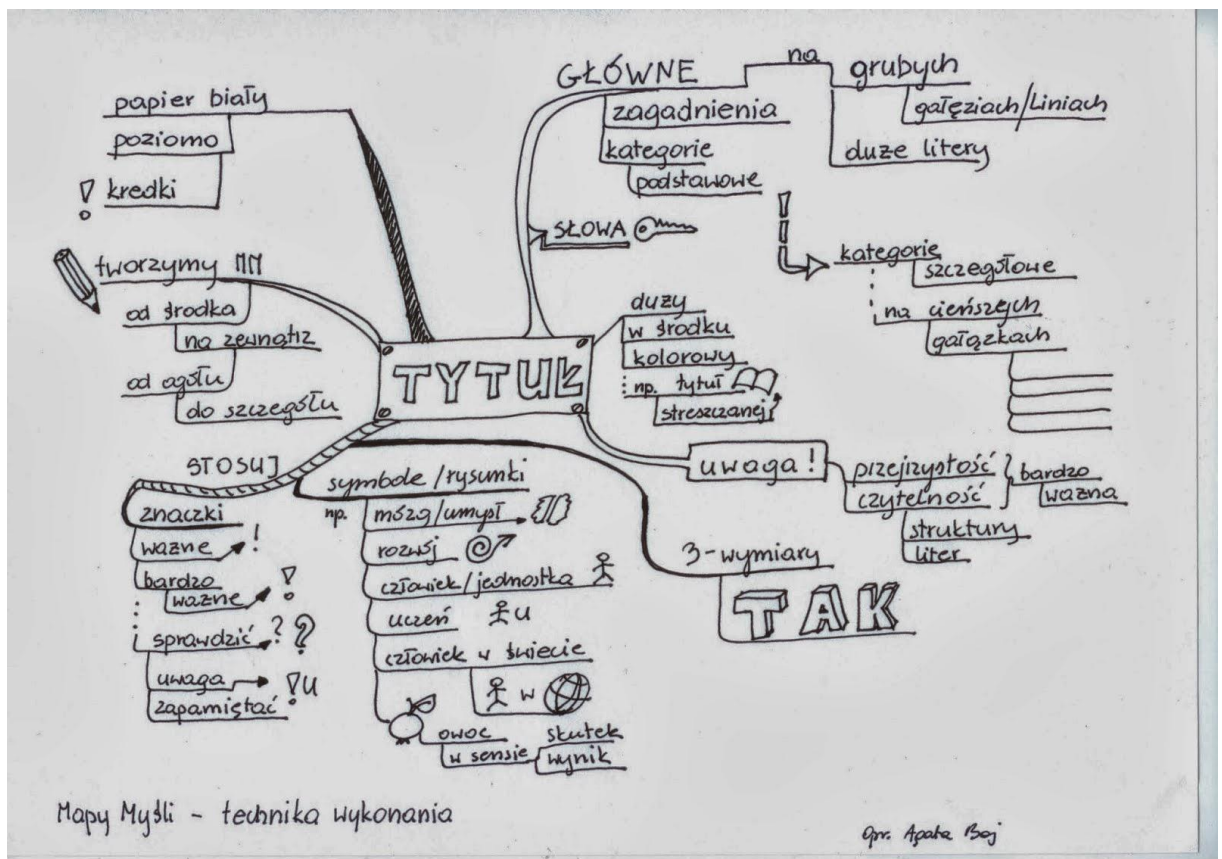 papier biały
poziomo
! kredki
tworzymy MM
od środka
na zewnątrz
od ogółu
do szczegółu
GŁÓWNE
zagadnienia
kategorie
podstawowe
na
grubych
gałęziach/Liniach
duże litery
SŁOWA
!
kategorie
szczegółowe
na cieńszych
gałązkach
TYTUŁ
duży
w środku
kolorowy
np. tytuł
streszczanej
uwaga!
przejrzystość
czytelność
bardzo
ważna
struktury
liter
3-wymiary
TAK
STOSUJ
znaczki
ważne !
bardzo
ważne !
sprawdzić ? ?
uwaga
zapamiętać !u
symbole/rysunki
np. mózg/umysł
rozwój
człowiek/jednostka
uczeń u
człowiek w świecie
w
owoc
w sensie
skutek
wynik
Mapy Myśli - technika wykonania
opr. Agata Baj